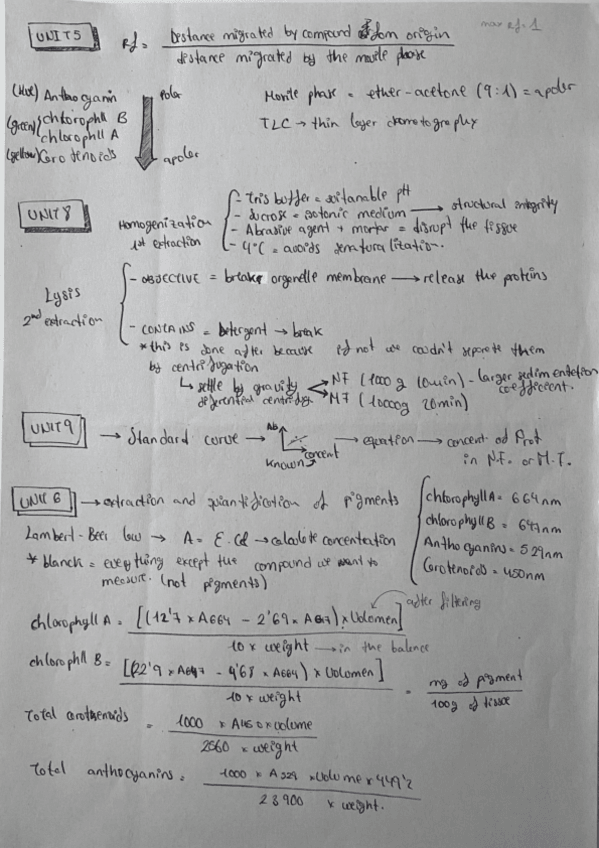 UNIT 5
Rf = Distance migrated by compound from origin
distance migrated by the movile phase
max Rf = 1
(blue) Anthocyanin
(green) { chlorophyll B
chlorophyll A
(yellow) Carotenoids
Polar
apolar
Movile phase = ether-acetone (9:1) = apolar
TLC → thin layer chromatography
UNIT 8
Homogenization
1st extraction
- Tris buffer = suitanable pH
- Sucrose = isotonic medium → structural integrity
- Abrasive agent + mortar = disrupt the tissue
- 4°C = avoids denaturalization.
Lysis
2nd extraction
- OBJECTIVE = break organelle membrane → release the proteins
- CONTAINS = Detergent → break
* this is done after because if not we couldn't separate them
by centrifugation
↳ settle by gravity
differential centrifug
NF (1000 g 10min) - larger sedimentation coefficient.
MF (10000g 20min)
UNIT 9
→ Standard curve → Ab concent → equation → concent. of Prot
Known
in N.F. or M.F.
UNIT 6
→ extraction and quantification of pigments
Lambert-Beer law → A = E.Cl → calculate concentration
* blanck = everything except the compound we want to
measure. (not pigments)
chlorophyll A = 664 nm
chlorophyll B = 647 nm
Anthocyanins = 529nm
Carotenoids = 450nm
chlorophyll A = [(12'7 × A664 - 2'69 × A647) × Volumen]
after filtering
10 × weight → in the balance
chlorophll B = [(22'9 × A647 - 4'68 × A664) × Volumen]
10 × weight
= mg of pigment
100g of tissue
Total carothenoids = 1000 × A450 × volume
2560 × weight
Total anthocyanins = 1000 × A529 × Volume × 449'2
23900 × weight.